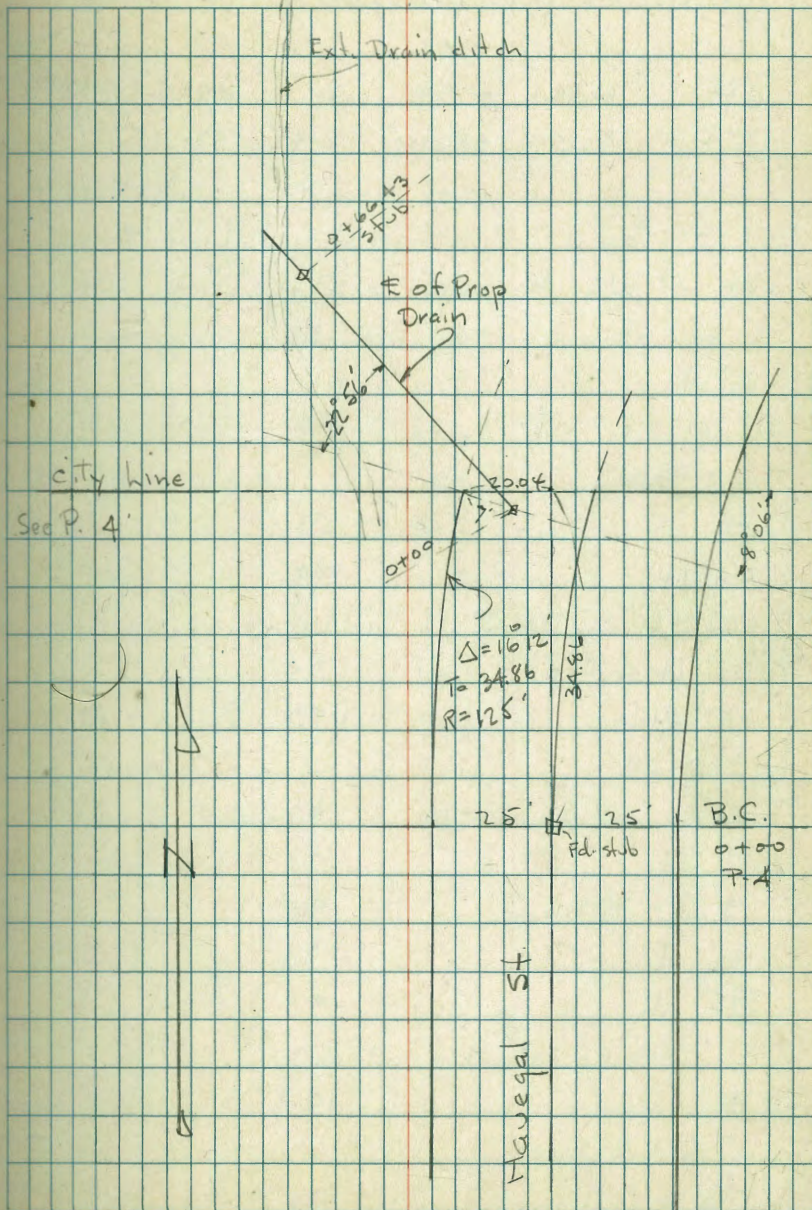 Ext. Drain ditch
0+66.43
Stub
℄ of Prop
Drain
22°56'
City Line
See P. 4
20.04
7'
0+00
8°06'
Δ=16°12'
T= 34.86
R=125'
34.86
25'
25'
Fd. stub
B.C.
0+00
P-4
N
St